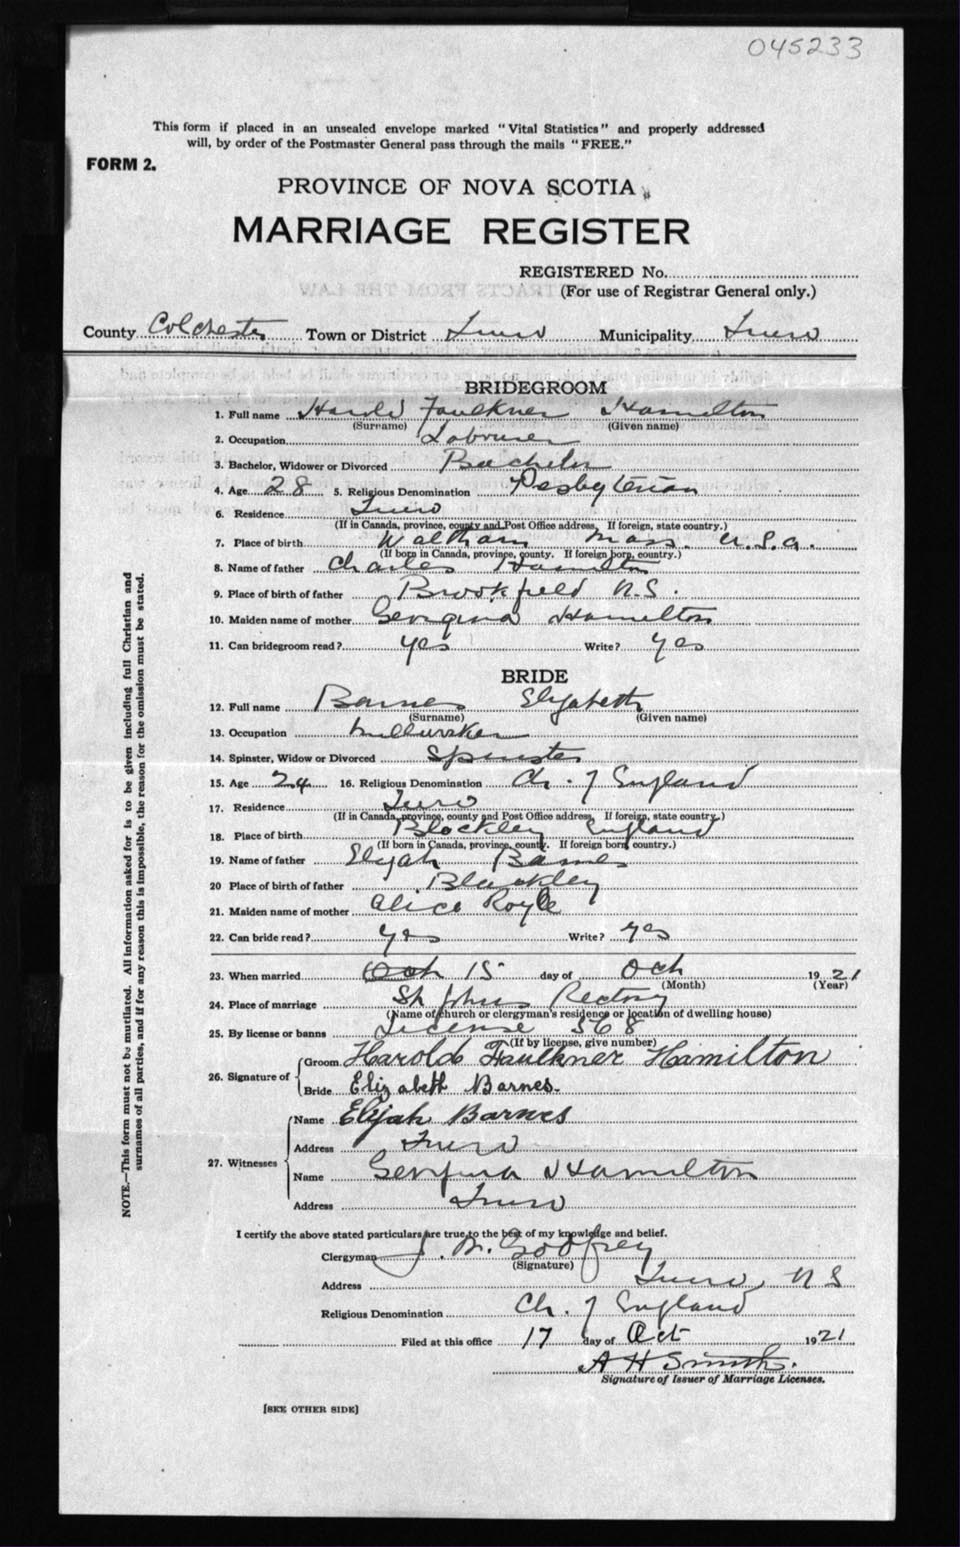 045233
This form if placed in an unsealed envelope marked "Vital Statistics" and properly addressed
will, by order of the Postmaster General pass through the mails "FREE."
FORM 2.
PROVINCE OF NOVA SCOTIA
MARRIAGE REGISTER
REGISTERED No.
(For use of Registrar General only.)
County Colchester Town or District Truro Municipality Truro
BRIDEGROOM
1. Full name Harold Faulkner Hamilton
(Surname) (Given name)
2. Occupation Labourer
3. Bachelor, Widower or Divorced Bachelor
4. Age 28 5. Religious Denomination Presbyterian
6. Residence Truro
(If in Canada, province, county and Post Office address, If foreign, state country.)
7. Place of birth Waltham Mass. U.S.A.
(If born in Canada, province, county. If foreign born, country.)
8. Name of father Charles Hamilton
9. Place of birth of father Brookfield N.S.
10. Maiden name of mother Georgina Hamilton
11. Can bridegroom read? yes Write? yes
BRIDE
12. Full name Barnes Elizabeth
(Surname) (Given name)
13. Occupation
14. Spinster, Widow or Divorced Spinster
15. Age 24 16. Religious Denomination Ch. of England
17. Residence Truro
(If in Canada, province, county and Post Office address, If foreign, state country.)
18. Place of birth Blockley England
(If born in Canada, province, county. If foreign born, country.)
19. Name of father Elijah Barnes
20 Place of birth of father Blackley
21. Maiden name of mother Alice Royle
22. Can bride read? yes Write? yes
23. When married Oct 15 day of Och 1921
(Month) (Year)
24. Place of marriage St Johns Rectory
(Name of church or clergyman's residence or location of dwelling house)
25. By license or banns License 568
(If by license, give number)
26. Signature of
Groom Harold Faulkner Hamilton
Bride Elizabeth Barnes.
27. Witnesses
Name Elijah Barnes
Address Truro
Name Georgina Hamilton
Address Truro
I certify the above stated particulars are true to the best of my knowledge and belief.
Clergyman J. M. Godfrey
(Signature)
Address Truro, N S
Religious Denomination Ch. of England
Filed at this office 17 day of Oct 1921
A H Smith.
Signature of Issuer of Marriage Licenses.
[SEE OTHER SIDE]
NOTE.—This form must not be mutilated. All information asked for is to be given including full Christian and
surnames of all parties, and if for any reason this is impossible, the reason for the omission must be stated.